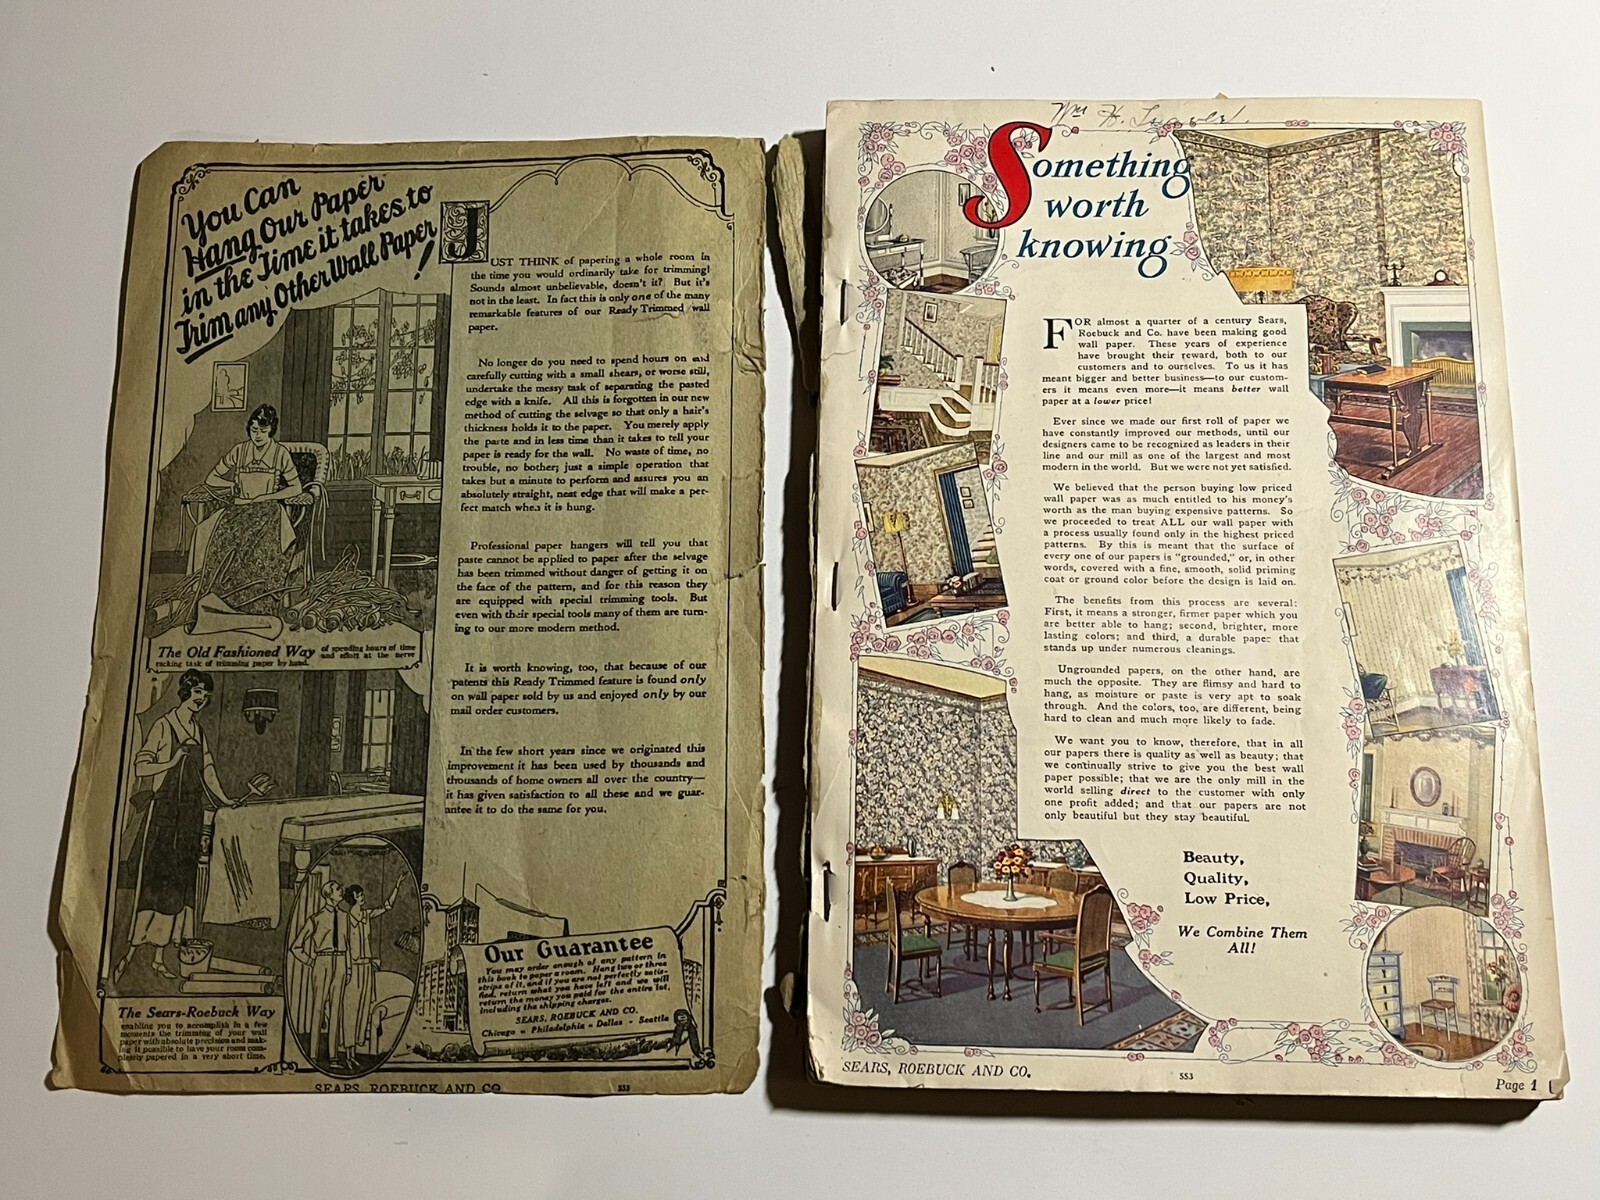 You Can
Hang Our Paper
in the Time it takes to
Trim any Other Wall Paper!
JUST THINK of papering a whole room in
the time you would ordinarily take for trimming!
Sounds almost unbelievable, doesn't it? But it's
not in the least. In fact this is only one of the many
remarkable features of our Ready Trimmed wall
paper.
No longer do you need to spend hours on end
carefully cutting with a small shears, or worse still,
undertake the messy task of separating the pasted
edge with a knife. All this is forgotten in our new
method of cutting the selvage so that only a hair's
thickness holds it to the paper. You merely apply
the paste and in less time than it takes to tell your
paper is ready for the wall. No waste of time, no
trouble, no bother; just a simple operation that
takes but a minute to perform and assures you an
absolutely straight, neat edge that will make a per-
fect match when it is hung.
Professional paper hangers will tell you that
paste cannot be applied to paper after the selvage
has been trimmed without danger of getting it on
the face of the pattern, and for this reason they
are equipped with special trimming tools. But
even with their special tools many of them are turn-
ing to our more modern method.
It is worth knowing, too, that because of our
patents this Ready Trimmed feature is found only
on wall paper sold by us and enjoyed only by our
mail order customers.
In the few short years since we originated this
improvement it has been used by thousands and
thousands of home owners all over the country—
it has given satisfaction to all these and we guar-
antee it to do the same for you.
The Old Fashioned Way of spending hours of time
and effort at the nerve
racking task of trimming paper by hand.
The Sears-Roebuck Way
enabling you to accomplish in a few
moments the trimming of your wall
paper with absolute precision and mak-
ing it possible to have your room com-
pletely papered in a very short time.
Our Guarantee
You may order enough of any pattern in
this book to paper a room. Hang two or three
strips of it, and if you are not perfectly satis-
fied, return what you have left and we will
return the money you paid for the entire lot,
including the shipping charges.
SEARS, ROEBUCK AND CO.
Chicago - Philadelphia - Dallas - Seattle
SEARS, ROEBUCK AND CO. 553
Wm H.
Something
worth
knowing
FOR almost a quarter of a century Sears,
Roebuck and Co. have been making good
wall paper. These years of experience
have brought their reward, both to our
customers and to ourselves. To us it has
meant bigger and better business—to our custom-
ers it means even more—it means better wall
paper at a lower price!
Ever since we made our first roll of paper we
have constantly improved our methods, until our
designers came to be recognized as leaders in their
line and our mill as one of the largest and most
modern in the world. But we were not yet satisfied.
We believed that the person buying low priced
wall paper was as much entitled to his money's
worth as the man buying expensive patterns. So
we proceeded to treat ALL our wall paper with
a process usually found only in the highest priced
patterns. By this is meant that the surface of
every one of our papers is "grounded," or, in other
words, covered with a fine, smooth, solid priming
coat or ground color before the design is laid on.
The benefits from this process are several:
First, it means a stronger, firmer paper which you
are better able to hang; second, brighter, more
lasting colors; and third, a durable paper that
stands up under numerous cleanings.
Ungrounded papers, on the other hand, are
much the opposite. They are flimsy and hard to
hang, as moisture or paste is very apt to soak
through. And the colors, too, are different, being
hard to clean and much more likely to fade.
We want you to know, therefore, that in all
our papers there is quality as well as beauty; that
we continually strive to give you the best wall
paper possible; that we are the only mill in the
world selling direct to the customer with only
one profit added; and that our papers are not
only beautiful but they stay beautiful.
Beauty,
Quality,
Low Price,
We Combine Them
All!
SEARS, ROEBUCK AND CO. 553 Page 1